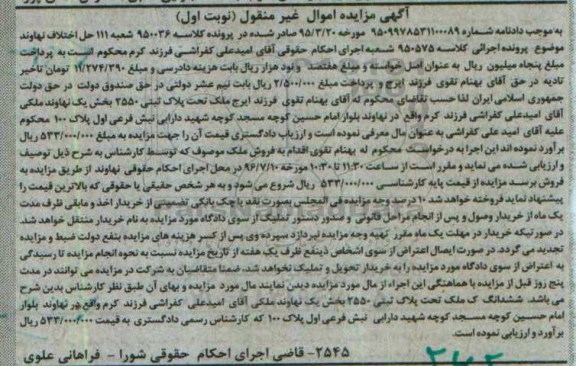 آگهی مزایده اموال غیر منقول (نوبت اول)
به موجب دادنامه شماره ۹۵۰۹۹۷۸۵۳۱۱۰۰۰۸۹ مورخه ۹۵/۳/۲۰ صادر شده در پرونده کلاسه ۹۵۰۰۳۶ شعبه ۱۱۱ حل اختلاف نهاوند
موضوع پرونده اجرائی کلاسه ۹۵۰۵۷۵ شعبه اجرای احکام حقوقی آقای امیدعلی کفراشی فرزند کرم محکوم است به پرداخت
مبلغ پنجاه میلیون ریال به عنوان اصل خواسته و مبلغ هفتصد ونود هزار ریال بابت هزینه دادرسی و مبلغ ۱۱/۲۷۴/۳۹۰ تومان تاخیر
تادیه در حق آقای بهنام تقوی فرزند ایرج و پرداخت مبلغ ۲/۵۰۰/۰۰۰ ریال بابت نیم عشر دولتی در حق صندوق دولت در حق دولت
جمهوری اسلامی ایران لذا حسب تقاضای محکوم له آقای بهنام تقوی فرزند ایرج ملک تحت پلاک ثبتی ۲۵۵۰ بخش یک نهاوند ملکی
آقای امیدعلی کفراشی فرزند کرم واقع در نهاوند بلوار امام حسین کوچه مسجد کوچه شهید دارابی نبش فرعی اول پلاک ۱۰۰ محکوم
علیه آقای امید علی کفراشی به عنوان مال معرفی نموده است و ارزیاب دادگستری قیمت آن را جهت مزایده به مبلغ ۵۳۳/۰۰۰/۰۰۰ ریال
برآورد نموده اند این اجرا به درخواست محکوم له بهنام تقوی اقدام به فروش ملک موصوف که توسط کارشناس به شرح ذیل توصیف
و ارزیابی شده می نماید و مقرر است از ساعت ۱۰:۳۰ تا ۱۱:۳۰ مورخه ۹۶/۷/۱۰ در محل اجرای احکام حقوقی نهاوند از طریق مزایده به
فروش برسد مزایده از قیمت پایه کارشناسی ۵۳۳/۰۰۰/۰۰۰ ریال شروع می شود و به هر شخص حقیقی یا حقوقی که بالاترین قیمت را
پیشنهاد نماید فروخته خواهد شد ۱۰ درصد وجه مزایده فی المجلس بصورت نقد یا چک بانکی تضمینی از خریدار اخذ و مابقی ظرف مدت
یک ماه از خریدار وصول و پس از انجام مراحل قانونی و صدور دستور تملیک از سوی دادگاه مورد مزایده به نام خریدار منتقل خواهد شد.
در صورتیکه خریدار در مهلت یک ماه مقرر تهیه وجه مزایده نپردازد سپرده وی پس از کسر هزینه های مزایده بنفع دولت ضبط و مزایده
تجدید می گردد. در صورت ایصال اعتراض از سوی اشخاص ذینفع ظرف یک هفته از تاریخ مزایده نسبت به نحوه انجام مزایده تا رسیدگی
به اعتراض از سوی دادگاه مورد مزایده را به خریدار تحویل و تملیک نخواهد شد. ضمنا متقاضیان به شرکت در مزایده می توانند در مدت
پنج روز قبل از مزایده با هماهنگی این اجراء از مال مورد مزایده دیدن نمایند مال مورد مزایده و بهای آن طبق نظر کارشناس بدین شرح
می باشد. ششدانگ ک ملک تحت پلاک ثبتی ۲۵۵۰ بخش یک نهاوند ملکی آقای امیدعلی کفراشی فرزند کرم واقع در نهاوند بلوار
امام حسسین کوچه مسجد کوچه شهید دارابی نبش فرعی اول پلاک ۱۰۰ که کارشناس رسمی دادگستری به قیمت ۵۳۳/۰۰۰/۰۰۰ ریال
برآورد و ارزیابی نموده است.
۲۵۴۵- قاضی اجرای احکام حقوقی شورا - فراهانی علوی